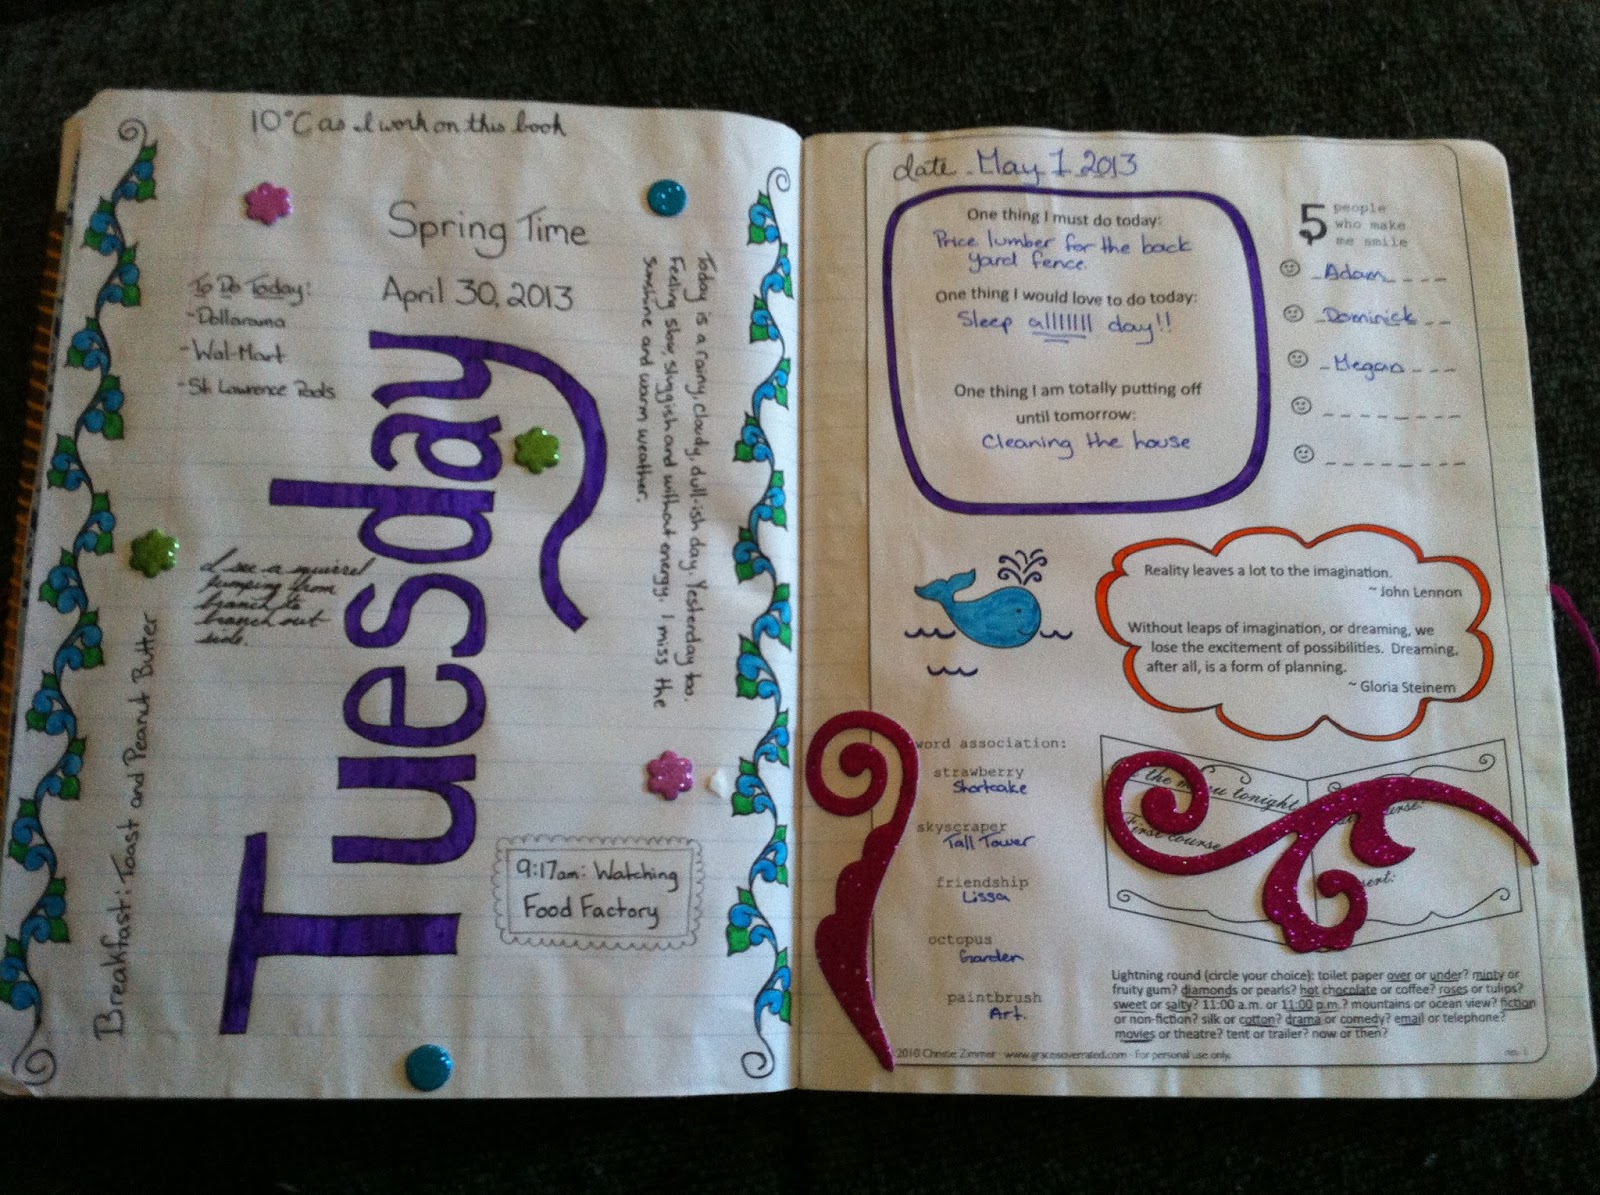 10°C as I work on this book
Spring Time
April 30, 2013
To Do Today:
-Dollarama
-Wal-Mart
-St. Lawrence Pools
Tuesday
Today is a rainy, cloudy, dull-ish day. Yesterday too.
Feeling slow, sluggish and without energy. I miss the
sunshine and warm weather.
I see a squirrel
jumping from
branch to
branch out
side.
Breakfast: Toast and Peanut Butter
9:17am: Watching
Food Factory
date May 1 2013
One thing I must do today:
Price lumber for the back
yard fence.
One thing I would love to do today:
Sleep allllllll day!!
One thing I am totally putting off
until tomorrow:
Cleaning the house
5 people
who make
me smile
Adam
Dominick
Megan
Reality leaves a lot to the imagination.
~ John Lennon
Without leaps of imagination, or dreaming, we
lose the excitement of possibilities. Dreaming,
after all, is a form of planning.
~ Gloria Steinem
word association:
strawberry
Shortcake
skyscraper
Tall Tower
friendship
Lissa
octopus
Garden
paintbrush
Art.
the menu tonight
First course
Lightning round (circle your choice): toilet paper over or under? minty or
fruity gum? diamonds or pearls? hot chocolate or coffee? roses or tulips?
sweet or salty? 11:00 a.m. or 11:00 p.m.? mountains or ocean view? fiction
or non-fiction? silk or cotton? drama or comedy? email or telephone?
movies or theatre? tent or trailer? now or then?
2010 Christie Zimmer · www.graceisoverrated.com · For personal use only.